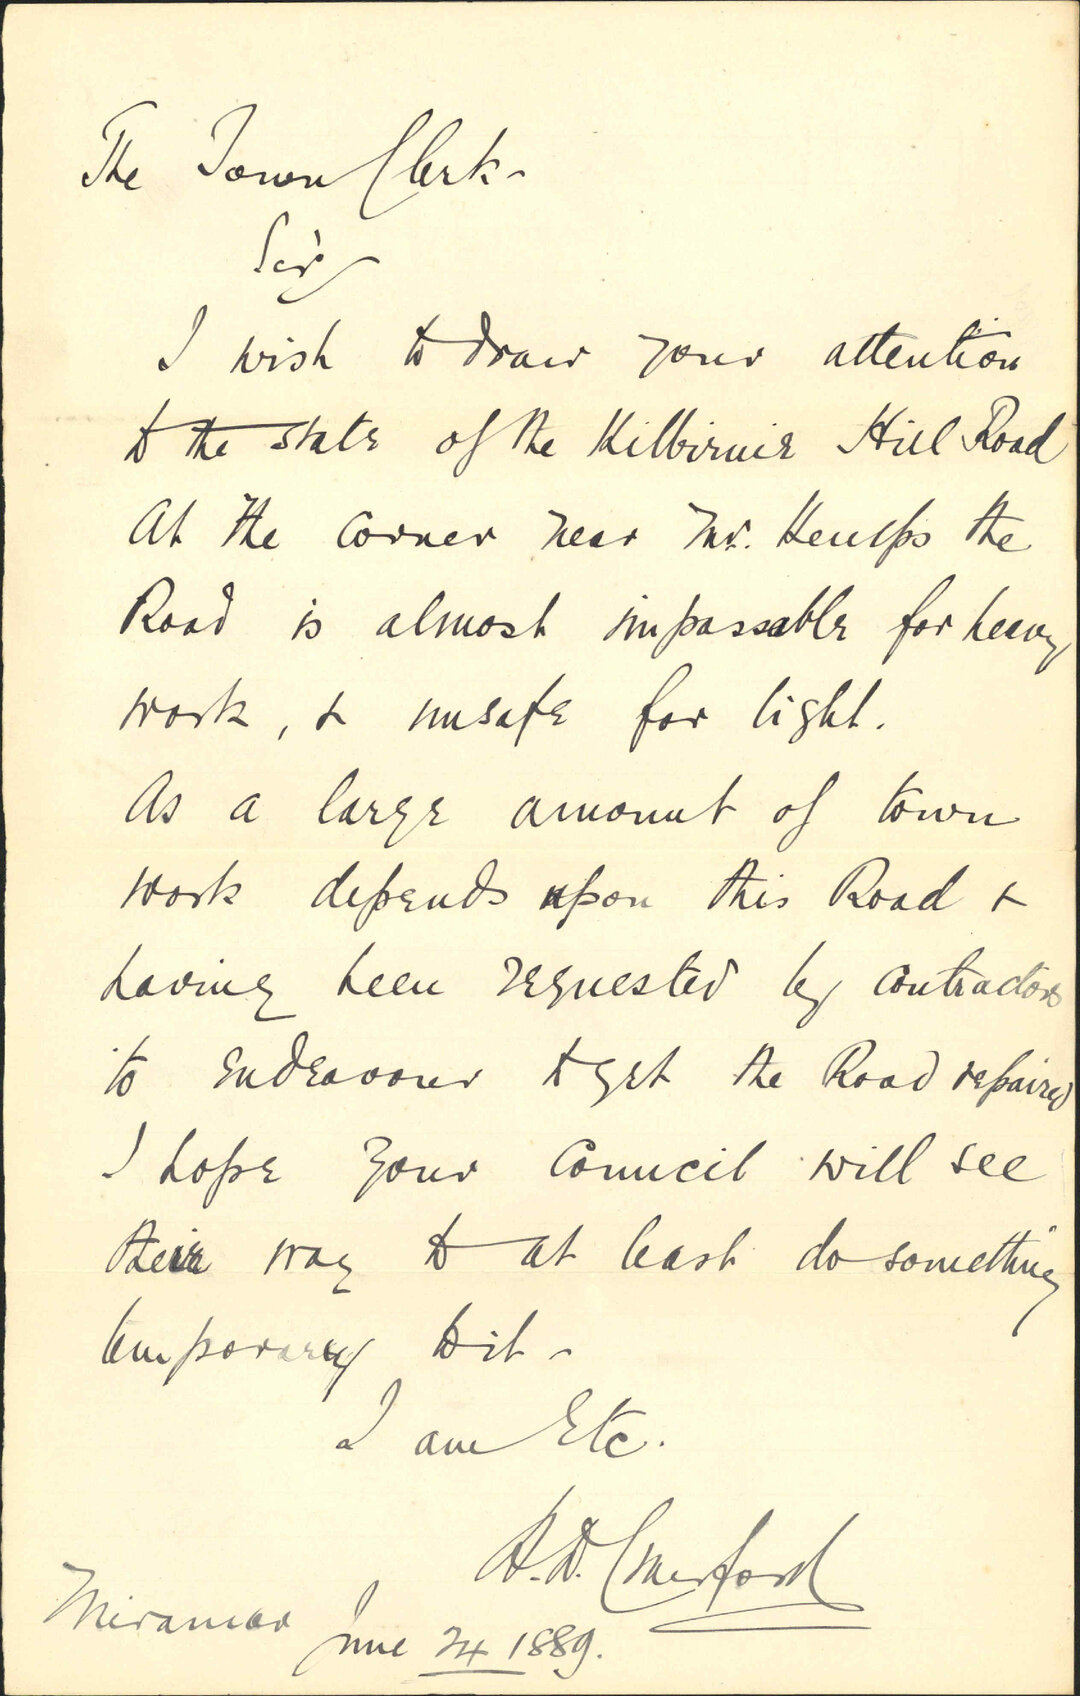 The Town Clerk -
Sir,
I wish to draw your attention
to the state of the Kilbirnie Hill Road
At the corner near Mr. the
Road is almost impassable for heavy
work, & unsafe for light.
As a large amount of town
work depends upon this Road &
having been requested by contractors
to endeavour to get the Road repaired
I hope your Council will see
their way to at least do something
temporary to it -
I am Etc.
H.D. Crawford
Miramar June 24 1889.